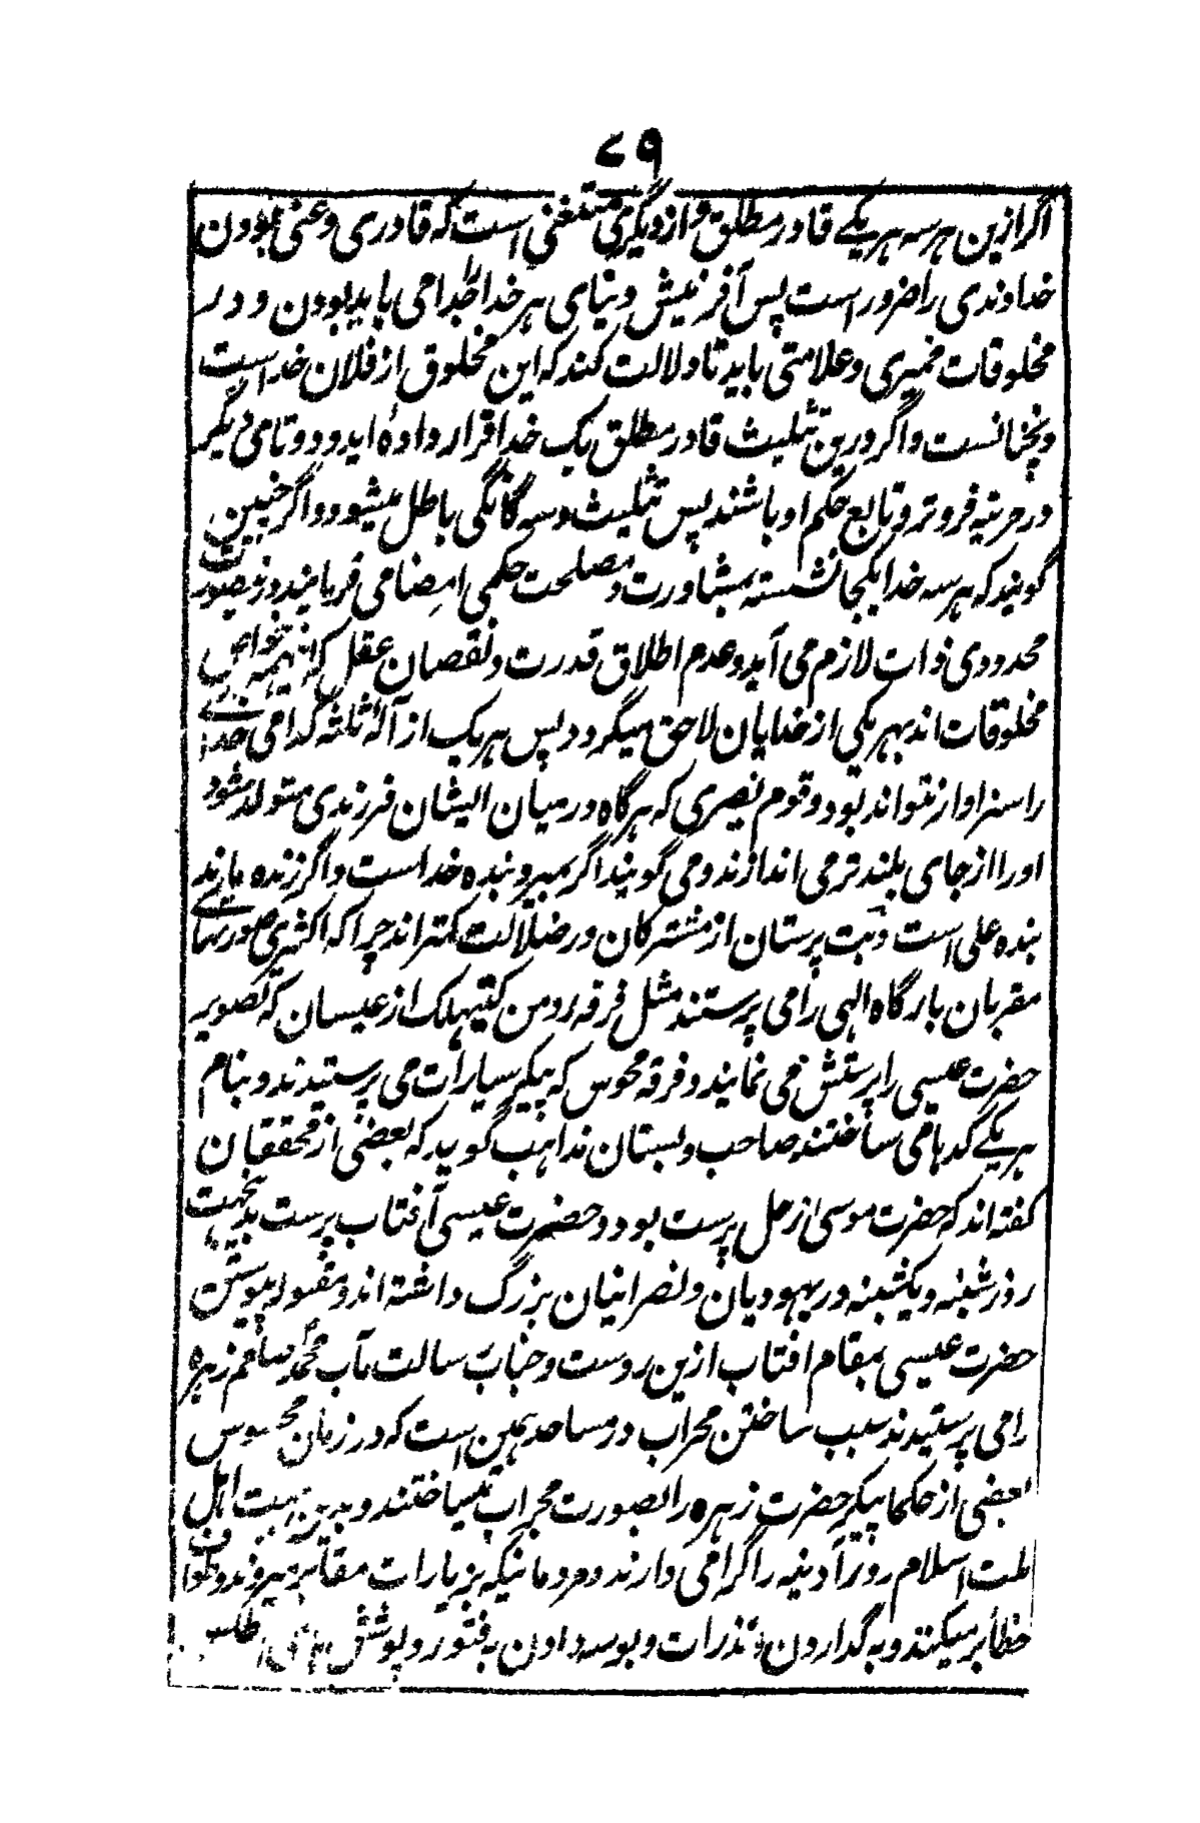 ۷۹
اگر ازین هرسه هر یکے قادر مطلق و از دیگری مستغنی است که قادری و غنی بودن
خداوندی را ضرور است پس آفرنیش و بنای هر خدا را جدا می باید بودن و در
مخلوقات ممیزی و علامتی باید تا دلالت کند که این مخلوق از فلان خداست
و چنانست و اگر درین تثلیث قادر مطلق یک خدا قرار داده اید و دو تای دیگر
در مرتبه فروتر و تابع حکم او باشند پس تثلیث و سه گانگی باطل میشود و اگر چنین
گویند که هرسه خدا یکجا نشسته بمشاورت و مصلحت حکمی امضا می فرمایند درینصورت
محدودی ذات لازم می آید و عدم اطلاق قدرت و نقصان عقل که اینهمه خواص
مخلوقات اند بهر یکی از خدایان لاحق میگردد پس هر یک از آلهٔ ثلثه کدامی خدای
را سزاوار نتواند بود و قوم نصیری که هرگاه درمیان ایشان فرزندی متولد شود
او را از جای بلند تر می اندازند و می گویند اگر بمیرد بنده خداست و اگر زنده ماند
بنده علی است و بت پرستان از مشترکان در ضلالت کمتر اند چرا که اکثری صورتهای
مقربان بارگاه الهی را می پرستند مثل فرقه رومن کیتهلک از عیسان که تصویر
حضرت عیسی را پرستش می نمایند و فرقه مجوس که پیکر سیارات می پرستیدند و بنام
هر یکے گدها می ساختند صاحب دبستان مذاهب گوید که بعضی از محققان
گفته اند که حضرت موسیٰ زحل پرست بود و حضرت عیسی آفتاب پرست بدینجهت
روز شنبه و یکشنبه در یهودیان و نصرانیان بزرگ داشته اند و مقوله پیوستن
حضرت عیسی بمقام افتاب ازین روست و جناب رسالت مآب محمد صلعم زهره
را می پرستیدند سبب ساختن محراب در مساجد همین است که در زمان مجوس
بعضی از حکما پیکر حضرت زهره را بصورت محراب میساختند و بدین جهت اهل
ملت اسلام روز آدینه را گرامی دارند و مردمانیکه بزیارات مقابر میروند و طواف
حظایر میکنند و به گداردن نذرات و بوسه دادن به قبور و پوشش